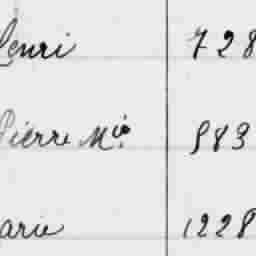 Henri 728
Pierre Mie 983
arie 1228